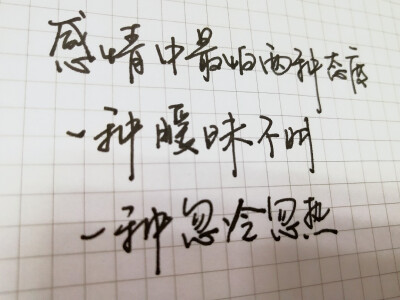 感情中最怕两种态度
一种暧昧不明
一种忽冷忽热